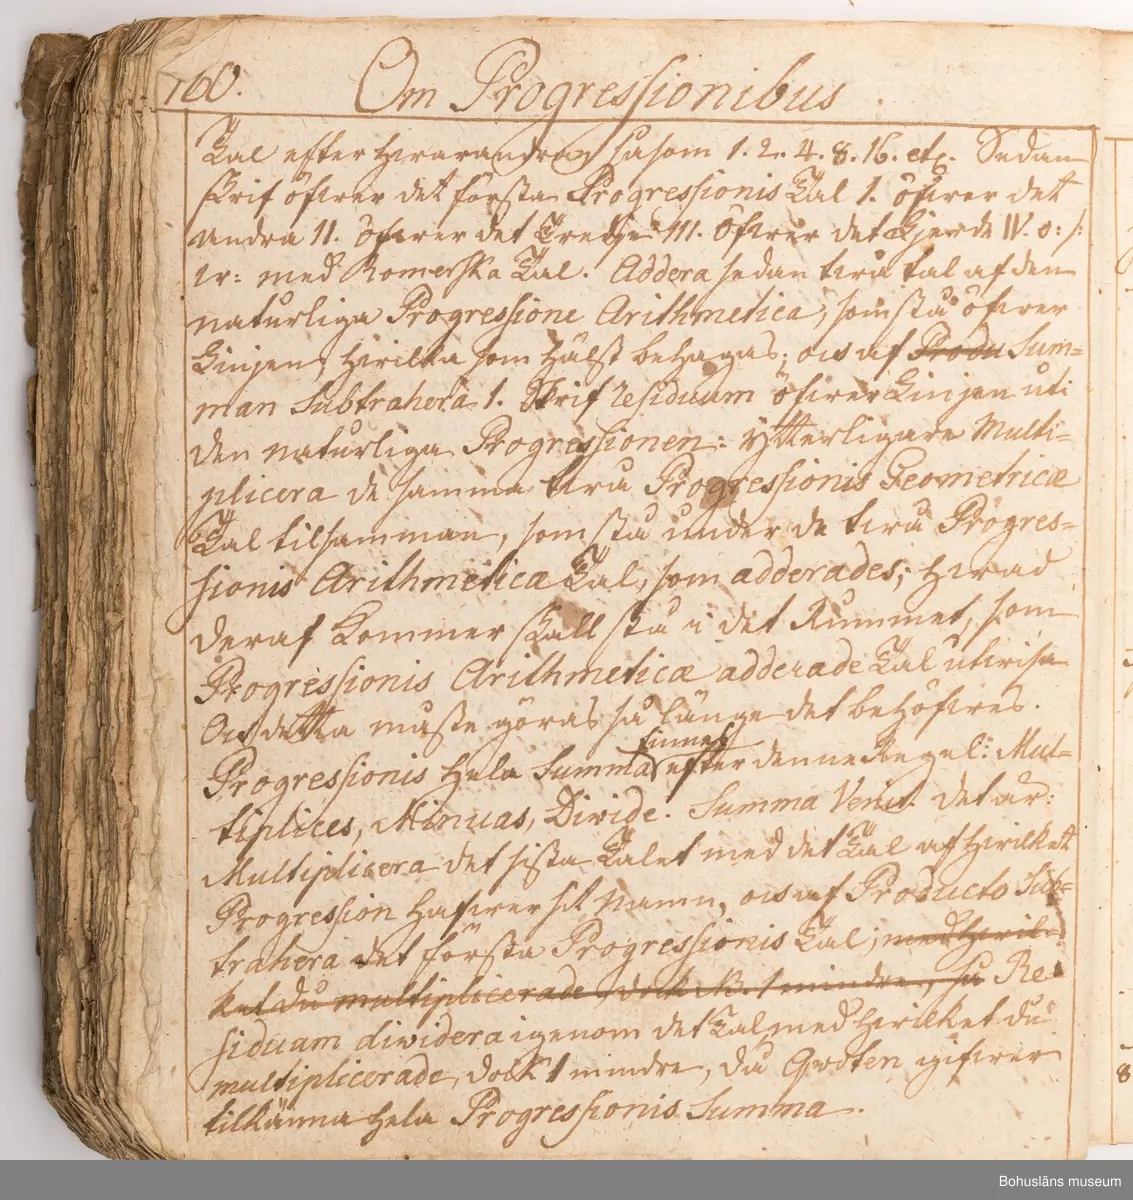 160. Om Progressionibus
Tal efter hvarandra såsom 1. 2. 4. 8. 16. etc. Sedan
skrif öfwer det första Progressionis Tal 1. öfwer det
Andra II. öfwer det Tredje III. öfwer det Fjerde IV. o: s:
w: med Romerska Tal. Addera sedan twå tal af den
naturliga Progressione Arithmetica, som stå öfwer
Linjen, hwilka som hälst behagas; och af Produ Sum=
man Subtrahera 1. Skrif residuum öfwer Linjen uti
den naturliga Progressionen: ytterligare Multi=
plicera de samma twå Progressionis Geometricæ
Tal tilsamman, som stå under de twå Progres=
sionis Arithmeticæ Tal, som adderades; hwad
deraf kommer skall stå i det Rummet, som
Progressionis Arithmeticæ adderade Tal utwisa
Och detta måste göras så länge det behöfwes.
finnes
Progressionis hela Summa efter denne Regel: Mul=
tiplices, Minuas, Divide. Summa Venit. det är:
Multiplicera det sista Talet med det Tal af hwilket
Progression hafwer sit Namn, och af Producto Sub=
trahera det första Progressionis Tal; med hwil=
ket du multiplicerade, dock 1 mindre, så Re=
siduum dividera igenom det Tal, med hwilket du
multiplicerade, dock 1 mindre, då Qvoten gifwer
tilkänna hela Progressionis Summa.
8
Bohusläns museum